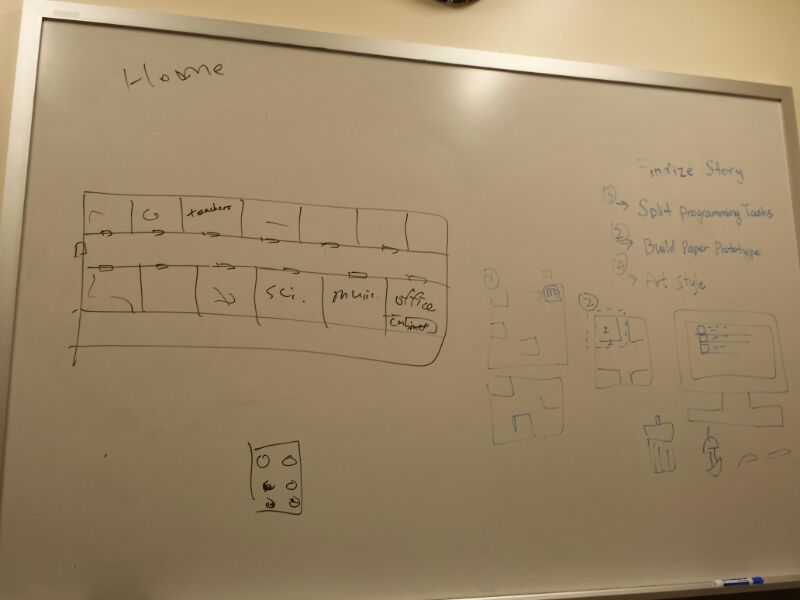 Home
teachers
sci.
music
office
cabinet
Finalize Story
③→ Split Programming Tasks
②→ Build Paper Prototype
④→ Art Style
①
②
2